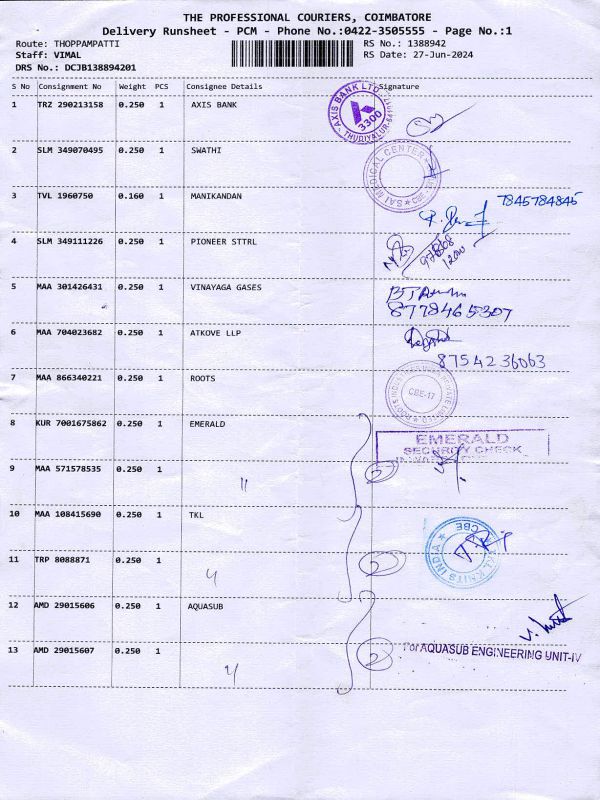 THE PROFESSIONAL COURIERS, COIMBATORE
Delivery Runsheet - PCM - Phone No.:0422-3505555 - Page No.:1
Route: THOPPAMPATTI RS No.: 1388942
Staff: VIMAL RS Date: 27-Jun-2024
DRS No.: DCJB138894201
S No Consignment No Weight PCS Consignee Details Signature
1 TRZ 290213158 0.250 1 AXIS BANK
AXIS BANK LTD. THUDIYALUR 3300
2 SLM 349070495 0.250 1 SWATHI
SAI MEDICAL CENTER CBE
3 TVL 1960750 0.160 1 MANIKANDAN
7845784845
4 SLM 349111226 0.250 1 PIONEER STTRL
5 MAA 301426431 0.250 1 VINAYAGA GASES
8778465307
6 MAA 704023682 0.250 1 ATKOVE LLP
8754236063
7 MAA 866340221 0.250 1 ROOTS
CBE-17
8 KUR 7001675862 0.250 1 EMERALD
EMERALD
SECURITY CHECK
9 MAA 571578535 0.250 1 "
2
10 MAA 108415690 0.250 1 TKL
KNITS INDIA CBE
11 TRP 8088871 0.250 1 "
2
12 AMD 29015606 0.250 1 AQUASUB
13 AMD 29015607 0.250 1 "
2
For AQUASUB ENGINEERING UNIT-IV